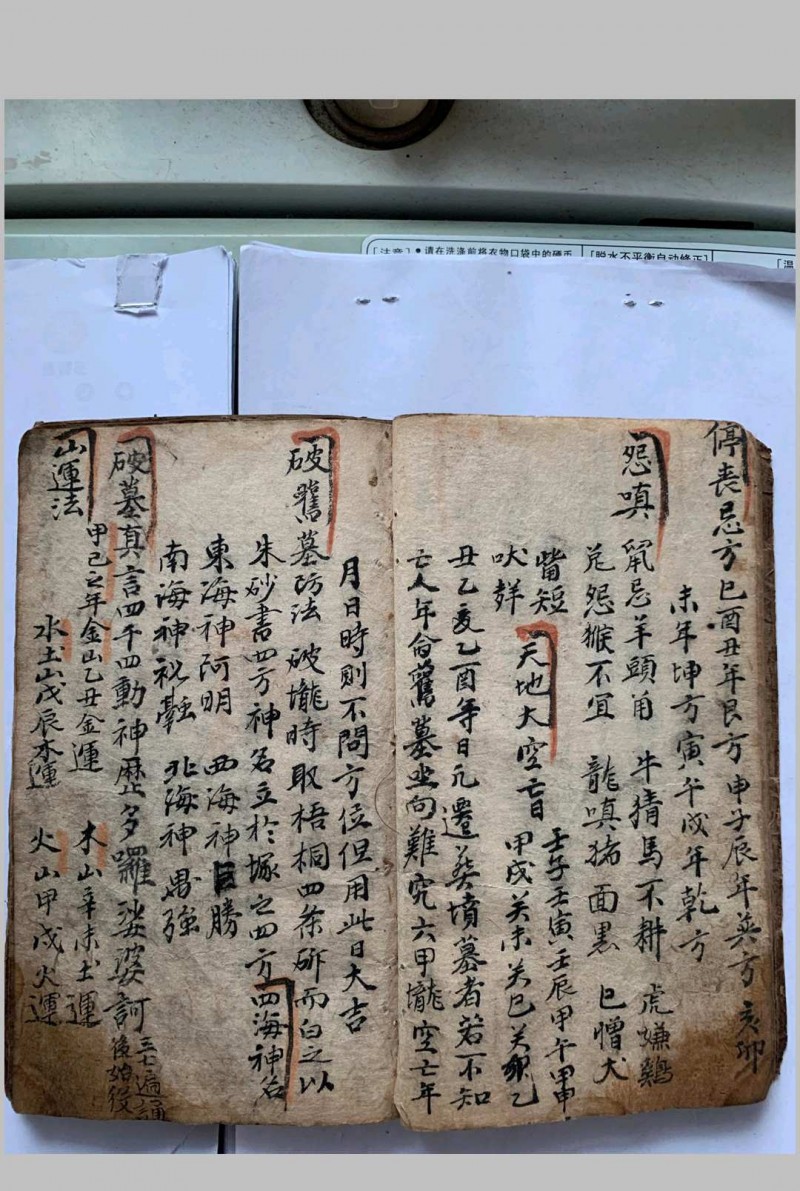 [注意]●请在洗涤前将衣物口袋中的硬币
[脱水不平衡自动修正]
[温
停丧忌方 巳酉丑年艮方 申子辰年巽方 亥卯
未年坤方寅午戌年乾方
怨嗔 鼠忌羊頭角 牛猜馬不耕 虎嫌鷄
兎怨猴不宜 龍嗔猪面黒 巳憎犬
嘴短
吠 天地大空亡日 壬子壬寅壬辰甲午甲申
甲戌关未关巳关卯乙
丑乙亥乙酉等日凡遷葬墳墓者若不知
亡人年命舊墓坐向難究六甲壠空亡年
月日時則不問方位但用此日大吉
破舊墓方法 破壠時取梧桐四条斫而白之以
朱砂書四方神名立於塚之四方 四海神名
東海神阿明 西海神巨勝
南海神祝融 北海神禺强
破墓真言四千四動神歷多囉娑婆訶 三七遍誦
後始役
山運法
甲己之年金山乙丑金運 木山辛未土運
水土山戊辰木運 火山甲戌火運